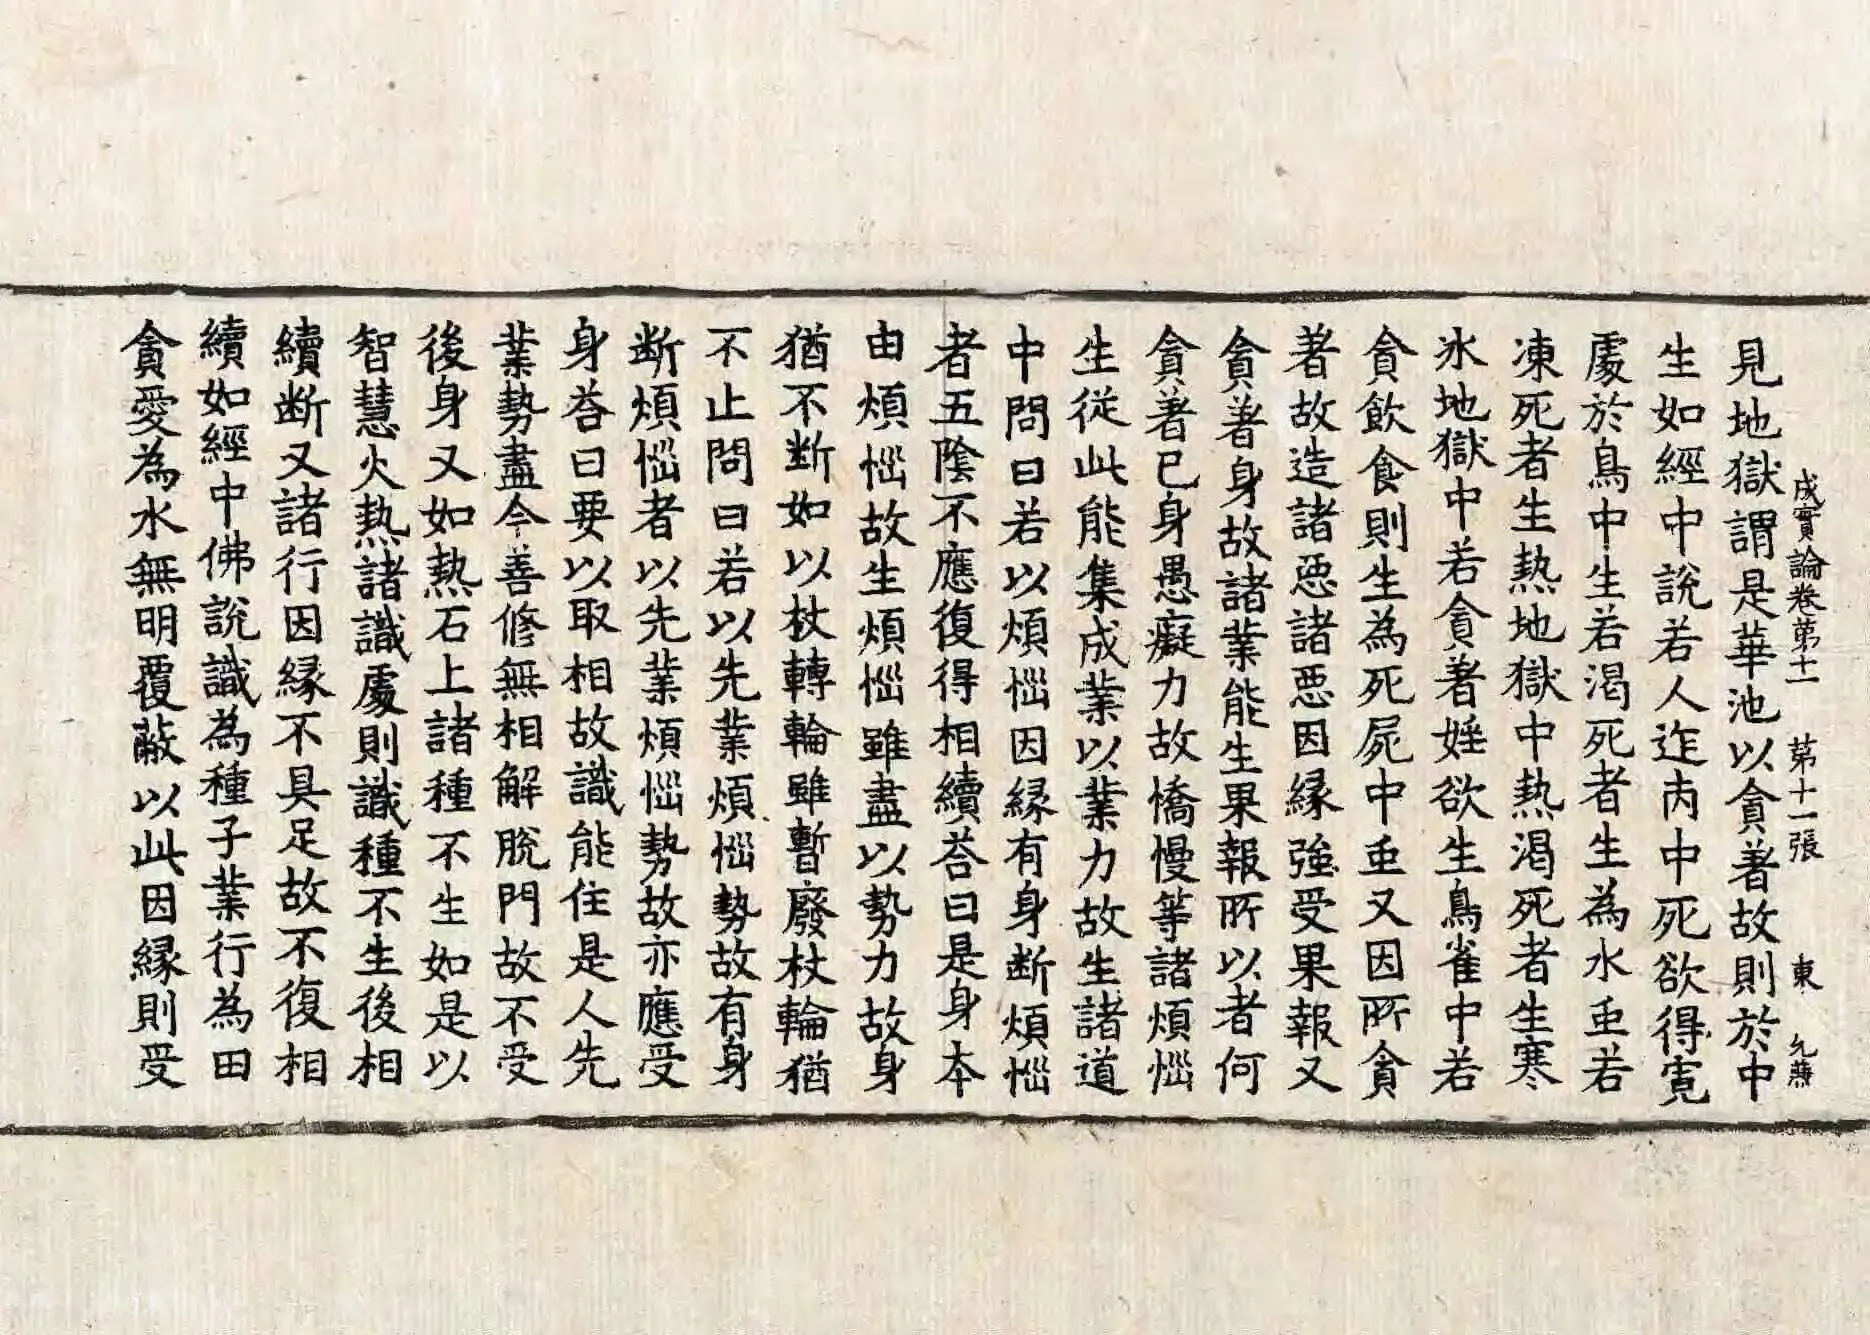 成實論卷第十一 第十一張 東
見地獄謂是華池以貪著故則於中
生如經中說若人迮內中死欲得寬
處於鳥中生若渴死者生為水虫若
凍死者生熱地獄中熱渴死者生寒
氷地獄中若貪著婬欲生鳥雀中若
貪飲食則生為死屍中虫又因所貪
著故造諸惡諸惡因緣強受果報又
貪著身故諸業能生果報所以者何
貪著已身愚癡力故憍慢等諸煩惱
生從此能集成業以業力故生諸道
中問曰若以煩惱因緣有身斷煩惱
者五陰不應復得相續荅曰是身本
由煩惱故生煩惱雖盡以勢力故身
猶不斷如以杖轉輪雖暫廢杖輪猶
不止問曰若以先業煩惱勢故有身
斷煩惱者以先業煩惱勢故亦應受
身荅曰要以取相故識能住是人先
業勢盡今善修無相解脫門故不受
後身又如熱石上諸種不生如是以
智慧火熱諸識處則識種不生後相
續斷又諸行因緣不具足故不復相
續如經中佛說識為種子業行為田
貪愛為水無明覆蔽以此因緣則受